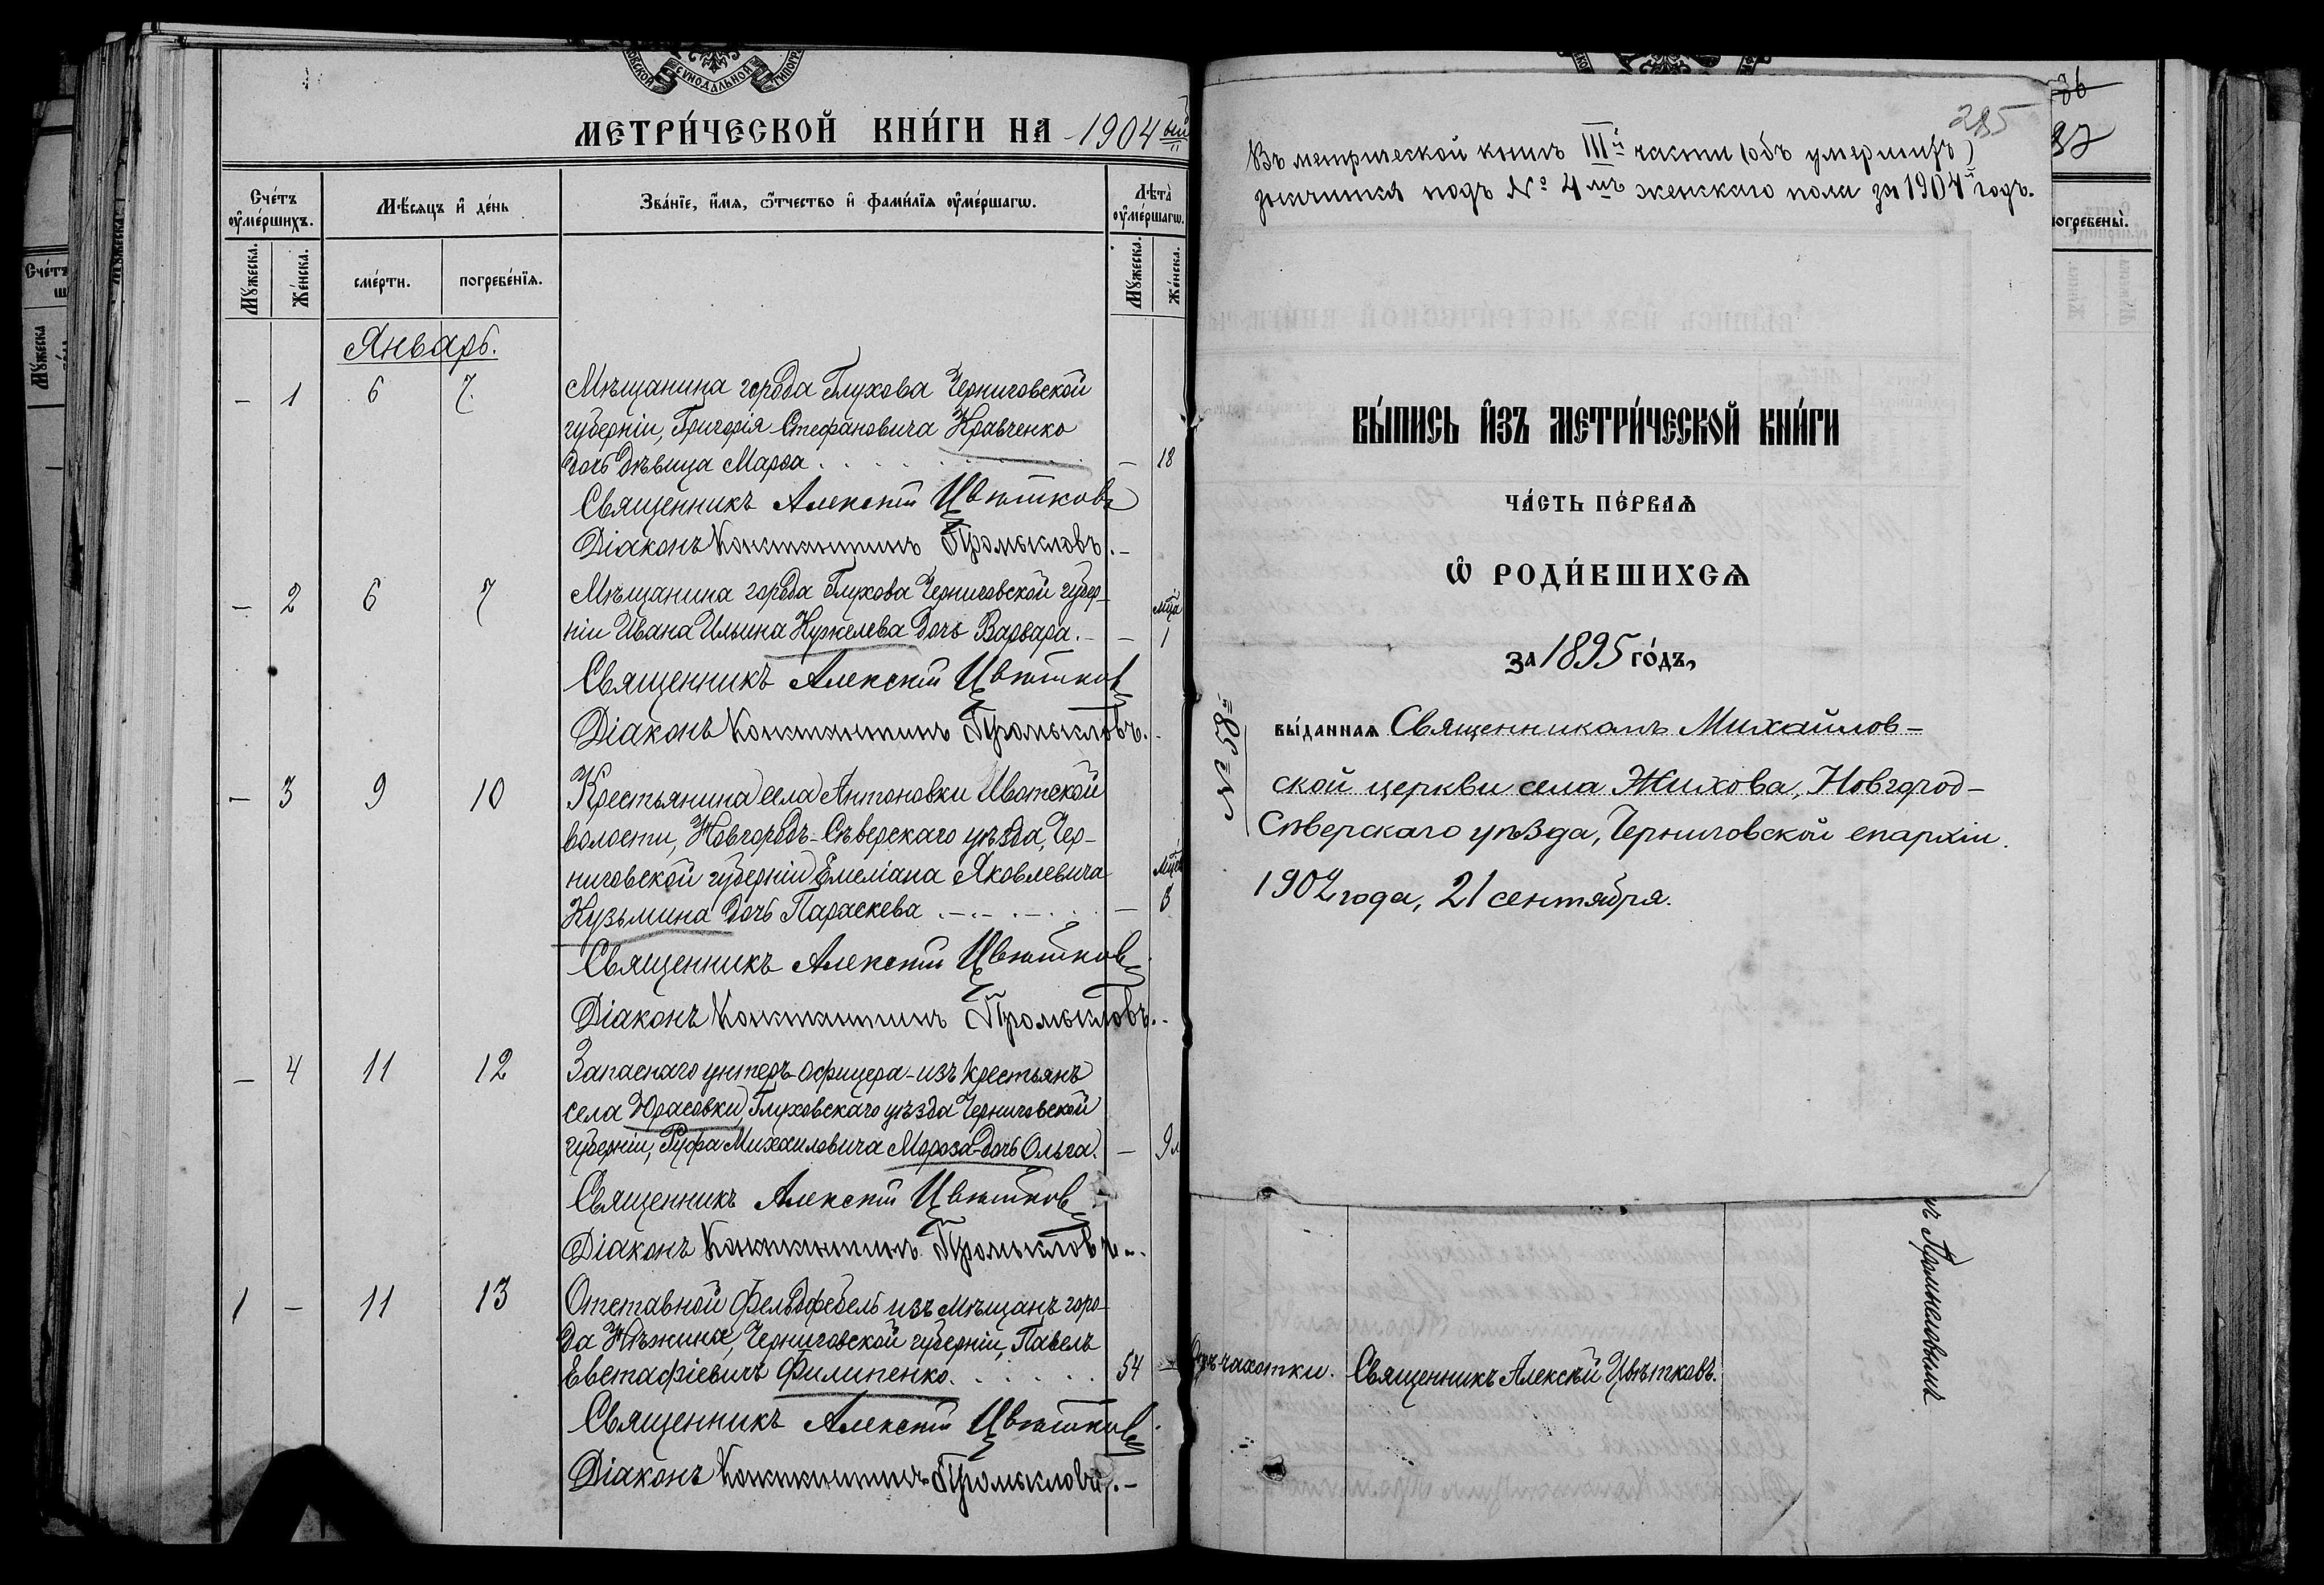 СУНОДАЛЬНОЙ
МЕТРИ́ЧЕСКОЙ КНИ́ГИ НА 1904 ый
Сче́тъ оу҆ме́ршихъ.
Мѣ́сяцъ и҆ де́нь
Зва́нїе, и҆́мя, ѻ҆́тчество и҆ фами́лїя оу҆ме́ршагѡ.
Лѣ́та оу҆ме́ршагѡ.
Му́жеска.
Же́нска.
сме́рти.
погребе́нїя.
Му́жеска.
Же́нска.
Январь.
— 1 6 7. Мѣщанина города Глухова Черниговской
губерніи, Григорія Стефановича Кравченко
дочь дѣвица Марфа . . . . . . — 18
Священникъ Алексѣй Цвѣтковъ
Діаконъ Константинъ Промысловъ.
— 2 6 7 Мѣщанина города Глухова Черниговской губер-
ніи Ивана Ильина Кужелева дочь Варвара. — мца 1
Священникъ Алексѣй Цвѣтковъ
Діаконъ Константинъ Промысловъ.
— 3 9 10 Крестьянина села Антоновки Ивотской
волости, Новгородъ-Сѣверскаго уѣзда, Чер-
ниговской губерніи Емеліана Яковлевича
Кузьмина дочь Параскева — 8
Священникъ Алексѣй Цвѣтковъ
Діаконъ Константинъ Промысловъ.
— 4 11 12 Запаснаго унтеръ-офицера-изъ крестьянъ
села Юрасовки, Глуховскаго уѣзда Черниговской
губерніи, Руфа Михаиловича Мороза-дочь Ольга. — 9 л
Священникъ Алексѣй Цвѣтковъ
Діаконъ Константинъ Промысловъ.
1 — 11 13 Отставной фельдфебель изъ мѣщанъ горо-
да Нѣжина, Черниговской губерніи, Павелъ
Евстафіевичъ Филипенко. . . . . . 54 —
Священникъ Алексѣй Цвѣтковъ
Діаконъ Константинъ Промысловъ.
285
Въ метрической книгѣ IIIй части (объ умершихъ)
значится подъ № 4мъ женскаго пола за 1904й годъ.
ВЫ́ПИСЬ И҆ЗЪ МЕТРИ́ЧЕСКОЙ КНИ́ГИ
ЧА́СТЬ ПЕ́РВАЯ
Ѡ҆ РОДИ́ВШИХСЯ
за 1895 го́дъ,
№ 58
вы́данная Священникомъ Михайлов-
ской церкви села Жихова, Новгород-
Сѣверскаго уѣзда, Черниговской епархіи.
1902 года, 21 сентября.
36
погребены̀.
Отъ чахотки. Священникъ Алексѣй Цвѣтковъ.
Промысловымъ